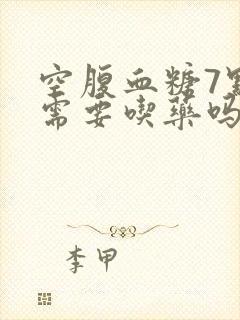 空腹血糖7
需要喫藥吗
李甲